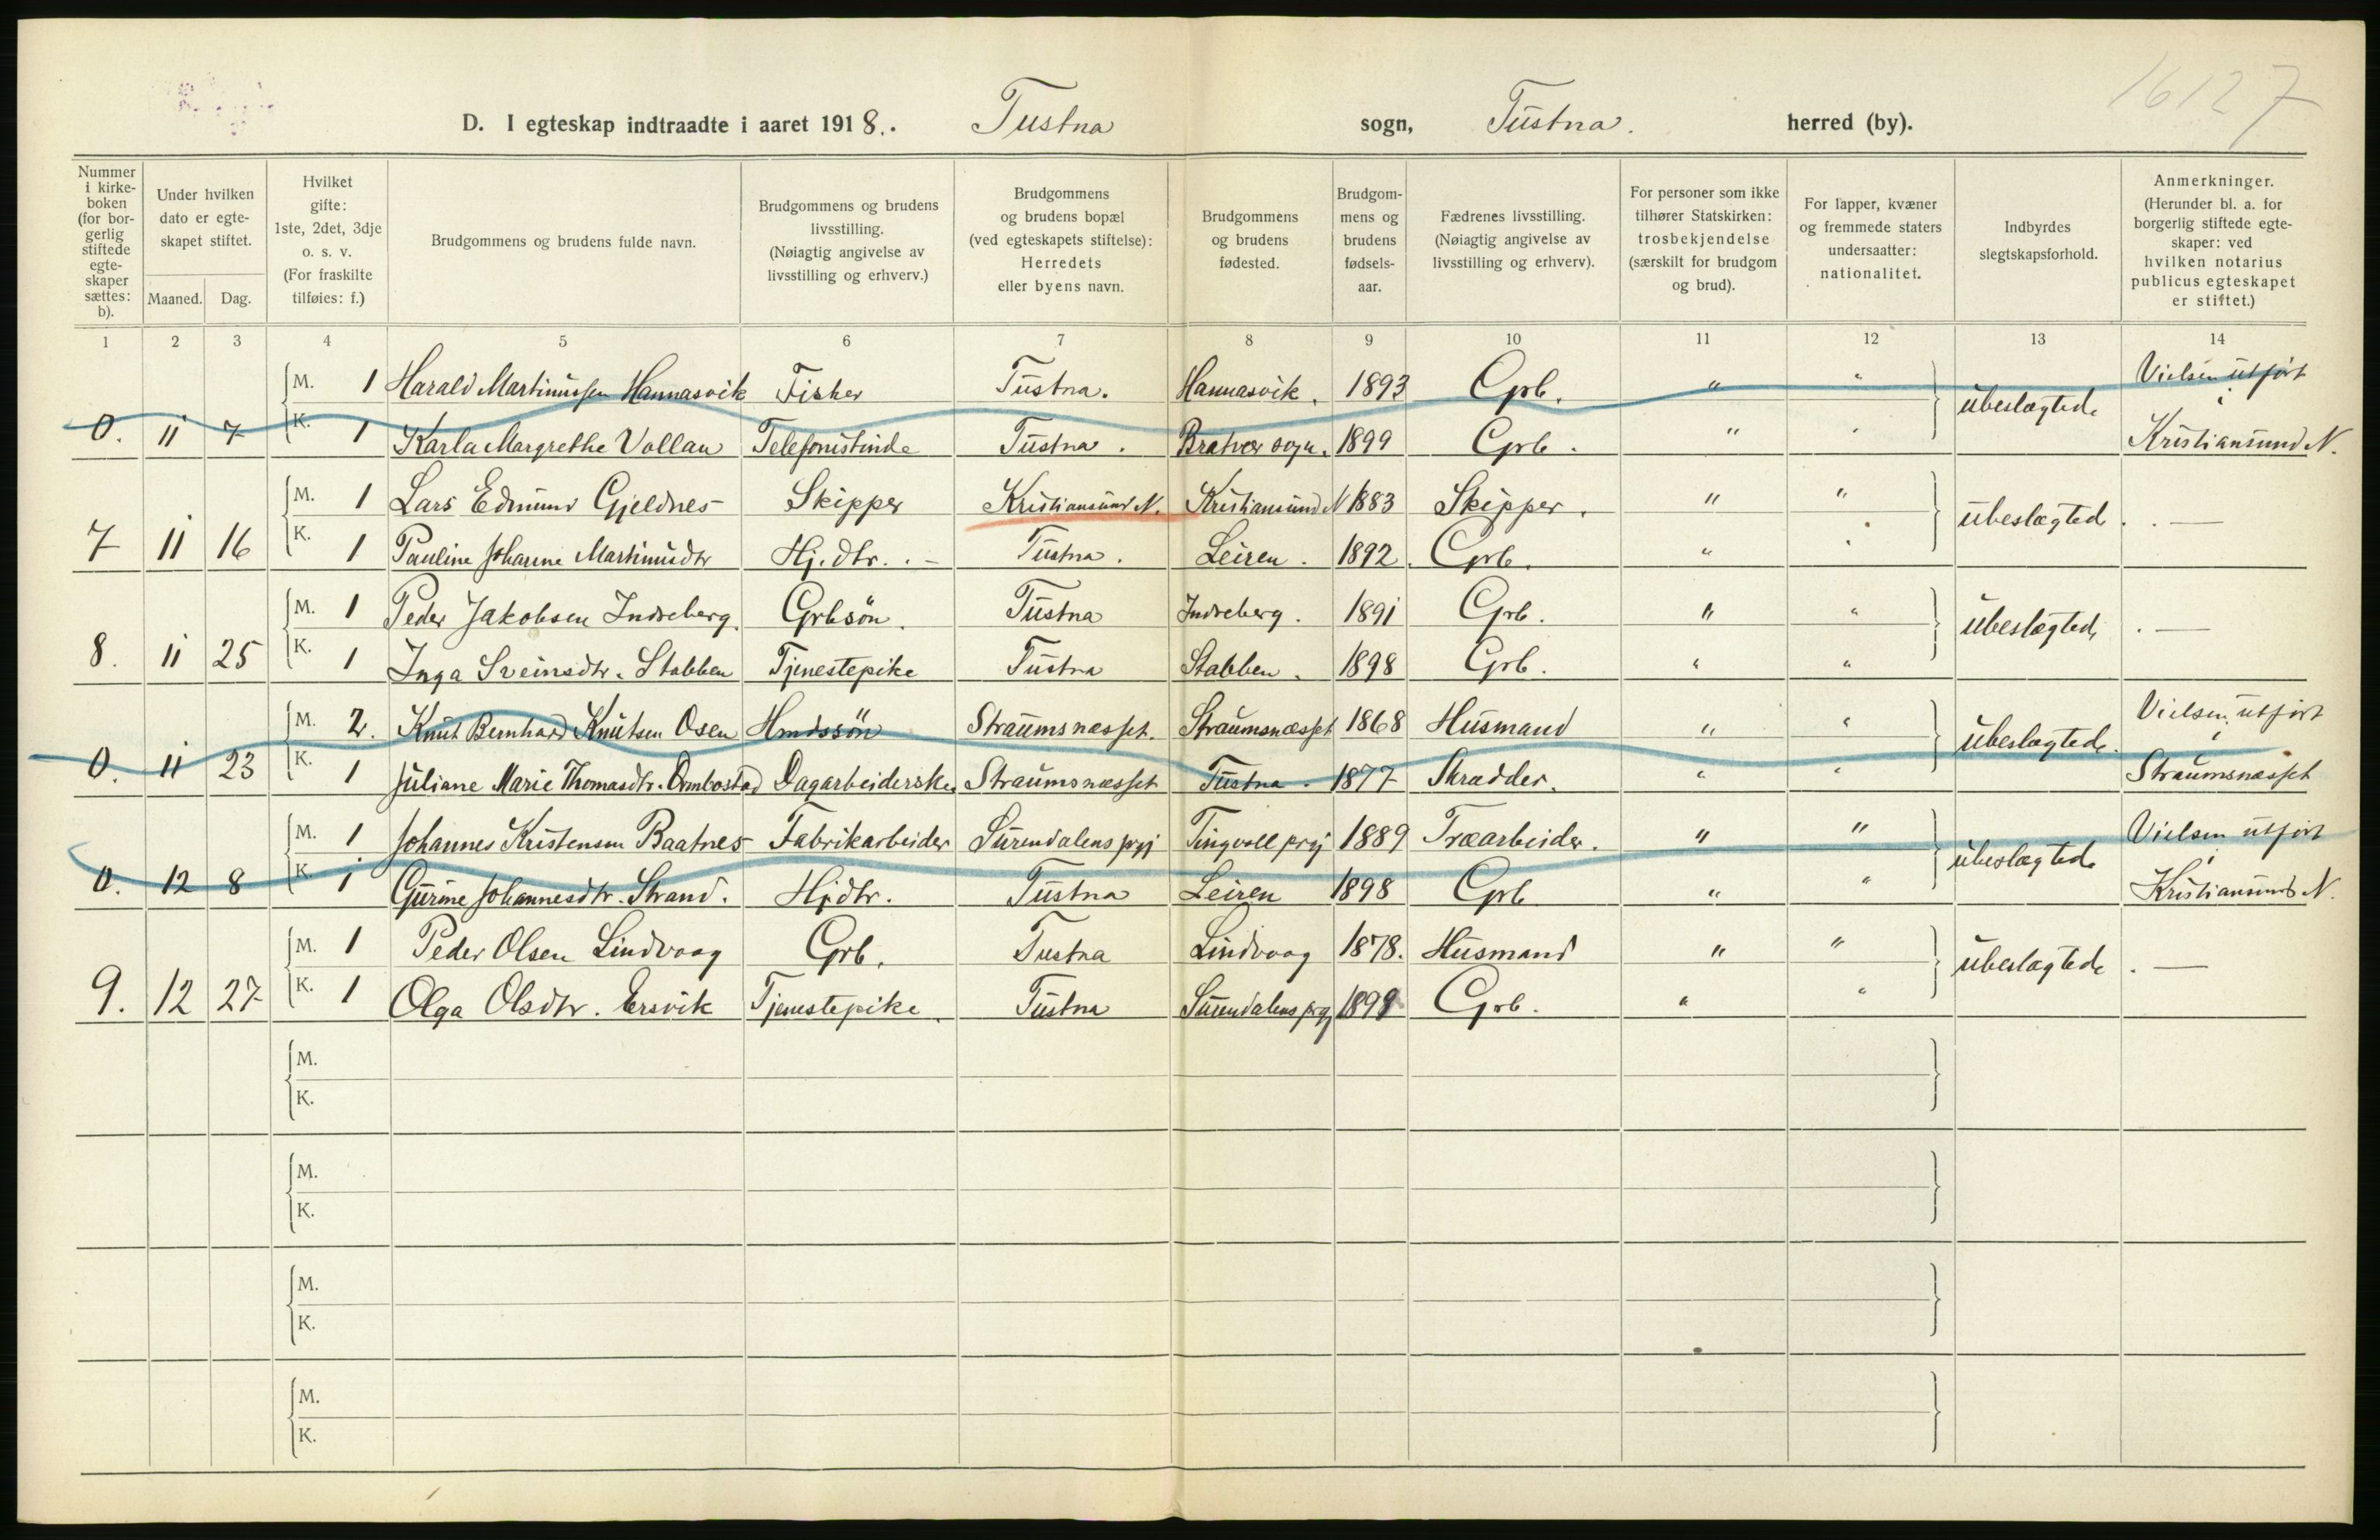 16127
D. I egteskap indtraadte i aaret 1918. Tustna sogn, Tustna. herred (by).
Nummer i kirke-boken (for bor-gerlig stiftede egte-skaper sættes: b).
Under hvilken dato er egte-skapet stiftet.
Maaned. Dag.
Hvilket gifte: 1ste, 2det, 3dje o. s. v. (For fraskilte tilføies: f.)
Brudgommens og brudens fulde navn.
Brudgommens og brudens livsstilling. (Nøiagtig angivelse av livsstilling og erhverv.)
Brudgommens og brudens bopæl (ved egteskapets stiftelse): Herredets eller byens navn.
Brudgommens og brudens fødested.
Brudgom-mens og brudens fødsels-aar.
Fædrenes livsstilling. (Nøiagtig angivelse av livsstilling og erhverv).
For personer som ikke tilhører Statskirken: trosbekjendelse (særskilt for brudgom og brud).
For lapper, kvæner og fremmede staters undersaatter: nationalitet.
Indbyrdes slegtskapsforhold.
Anmerkninger. (Herunder bl. a. for borgerlig stiftede egte-skaper: ved hvilken notarius publicus egteskapet er stiftet.)
1 2 3 4 5 6 7 8 9 10 11 12 13 14
M. 1 Harald Martinussen Hannasvik Fisker Tustna. Hannasvik. 1893 Grb. " " ubeslægtede Vielsen utført i
0. 11 7 K. 1 Karla Margrethe Vollan Telefonistinde Tustna. Bratvær sogn. 1899 Grb. " " Kristiansund N.
M. 1 Lars Edmund Gjeldnes Skipper Kristiansund N. Kristiansund N 1883 Skipper. " " ubeslægtede . . —
7 11 16 K. 1 Pauline Johanne Martinusdtr Hj. dtr. . - Tustna. Leiren. 1892. Grb. " "
M. 1 Peder Jakobsen Indreberg. Grbsön. Tustna Indreberg. 1891 Grb. " " ubeslægtede . —
8. 11 25 K. 1 Inga Sveinsdtr. Stabben Tjenestepike Tustna Stabben. 1898 Grb. " "
M. 2. Knut Bernhard Knutsen Osen Hmdssön Straumsnæsset. Straumsnæsset 1868 Husmand " " ubeslægtede. Vielsen utført i
0. 11 23 K. 1 Juliane Marie Thomasdtr. Ormbostad Dagarbeiderske Straumsnæsset Tustna. 1877 Skrædder. " " Straumsnæsset
M. 1 Johannes Kristensen Baatnes Fabrikarbeider Surendalens prgj Tingvoll prgj 1889 Træarbeider. " " ubeslægtede Vielsen utført i
0. 12 8 K. 1 Gurine Johannesdtr. Strand. Hjdtr. Tustna Leiren 1898 Grb " " Kristiansund N.
M. 1 Peder Olsen Lindvaag Grb. Tustna Lindvaag 1878. Husmand " " ubeslægtede . —
9. 12 27 K. 1 Olga Olsdtr. Ersvik Tjenestepike. Tustna Surendalens prgj Grb. " "
M.
K.
M.
K.
M.
K.
M.
K.